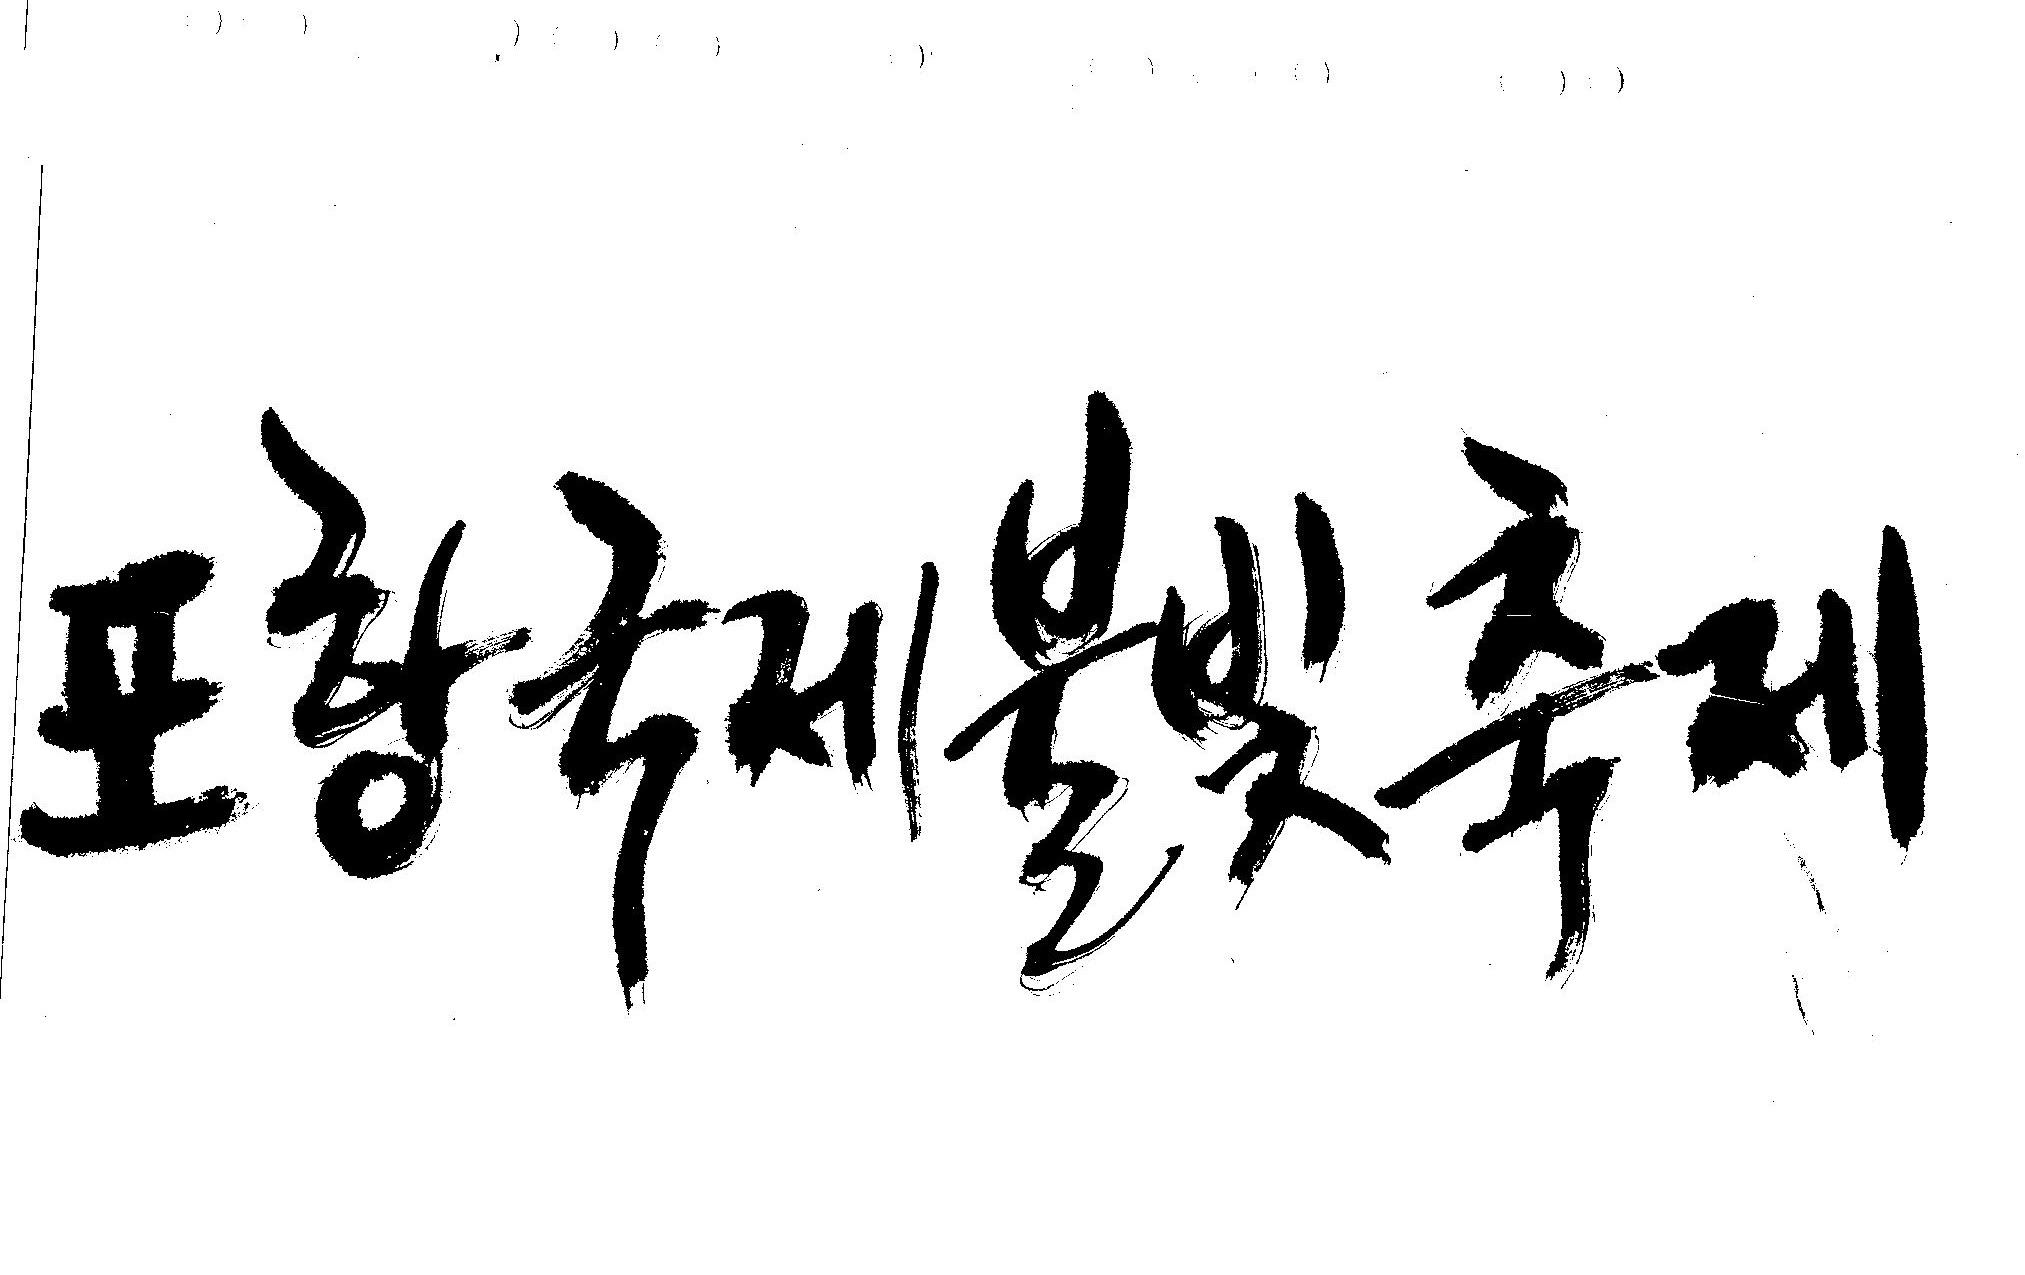 포항국제불빛축제